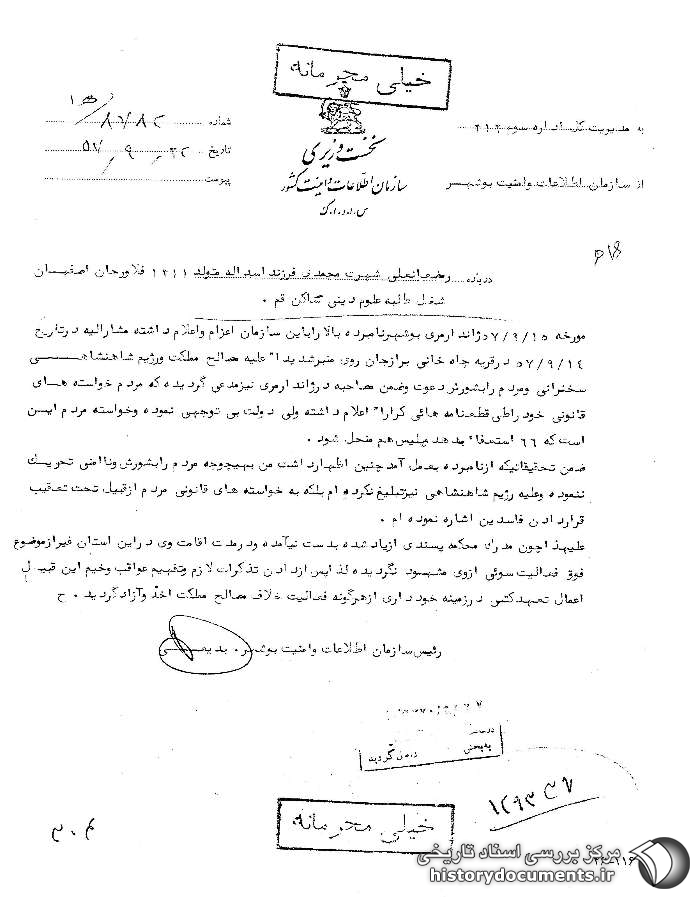 خیلی محرمانه
به مدیریت کل اداره سوم ۳۱۲
شماره ۸۷۸۲/ ه‍ ۱
نخست وزیری
تاریخ ۵۷/۹/۲۲
از سازمان اطلاعات وامنیت بوشهر
سازمان اطلاعات و امنیت کشور
پیوست
س.ا.و.ا.ک
درباره رمضانعلی شهرت محمدی فرزند اسداله متولد ۱۳۱۱ فلاورجان اصفهان
شغل طلبه علوم دینی ساکن قم .
مورخه ۵۷/۹/۱۵ ژاندارمری بوشهرنامبرده بالا رابه این سازمان اعزام واعلام داشته مشارالیه درتاریخ
۵۷/۹/۱۴ درقریه چاه خانی برازجان روی منبرشدیدا" علیه مصالح مملکت ورژیم شاهنشاهی
سخنرانی ومردم رابشورش دعوت وضمن مصاحبه درژاندارمری نیزمدعی گردیده که مردم خواسته های
قانونی خود راطی قطعنامه هائی کرارا" اعلام داشته ولی دولت بی توجهی نموده وخواسته مردم ایسن
است که ۶۶ استعفا" بدهد مجلیس هم منحل شود .
ضمن تحقیقاتیکه ازنامبرده بعمل آمدچنین اظهارداشت من بهیچوجه مردم رابشورش وناامنی تحریک
ننموده وعلیه رژیم شاهنشاهی نیزتبلیغ نکرده ام بلکه به خواسته های قانونی مردم ازقبیل تحت تعقیب
قراردادن فاسدین اشاره نموده ام .
علیهذا چون مدرک محکمه پسندی ازیاد شده بدست نیامده ودرمدت اقامت وی دراین استان غیرازموضوع
فوق فعالیت سوئی ازوی مشهود نگردیده لذا پس ازدادن تذکرات لازم وتفهیم عواقب وخیم این قبیل
اعمال تعهدکتبی درزمینه خودداری ازهرگونه فعالیت خلاف مصالح مملکت اخذ وآزادگردید . ح
رئیس سازمان اطلاعات وامنیت بوشهر . بدیعی
گردید
۱۲۹۳۳۷
خیلی محرمانه
مرکز بررسی اسناد تاریخی
historydocuments.ir